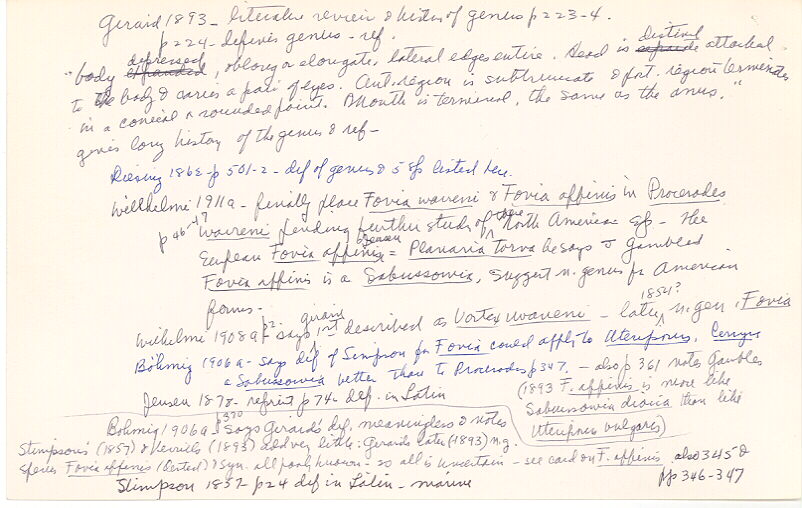 Girard 1893 - literature review & history of genus p 223-4.
p 224 - defines genus - ref.
"body depressed, oblong or elongate, lateral edges entire. Head is distinct attached
to the body & carries a pair of eyes. Ant. region is subtruncate & post. region terminates
in a conical or rounded point. Mouth is terminal, the same as the anus."
gives long history of the genus & ref -
p 501-2 - def of genus & 5 sp listed here.
Wilhelmi 1911a - finally place Fovia warreni & Fovia affinis in Procerodes
p 46-47 warreni pending further study of these North American sp - the
European Fovia affinis = Planaria torva he says & Gamble's
Fovia affinis is a Sabussowia, suggest n. genus for American
forms -
Wilhelmi 1908a p 2 - says Girard 1st described as Vortex warreni - later 1852? n. gen. Fovia
Böhmig 1906a - says def of Stimpson for Fovia could apply to Uteriporus, Cercyra
& Sabussowia better than to Procerodes p 347. - also p 361 notes Gambles
(1893 F. affinis is more like
Sabussowia dioica than like
Uteriporus vulgaris)
Jensen 1878 - reprint p 74 - def. in Latin
Böhmig 1906a p 370 says Girard's def. meaningless & notes
Stimpson's (1857) & Verrill's (1893) add very little: Girards later (1893) n.g.
species Fovia affinis (Oersted) & syn. all poorly known - so all is uncertain - see card on F. affinis also 345 &
pp 346-347
Stimpson 1857 p 24 def in Latin - marine